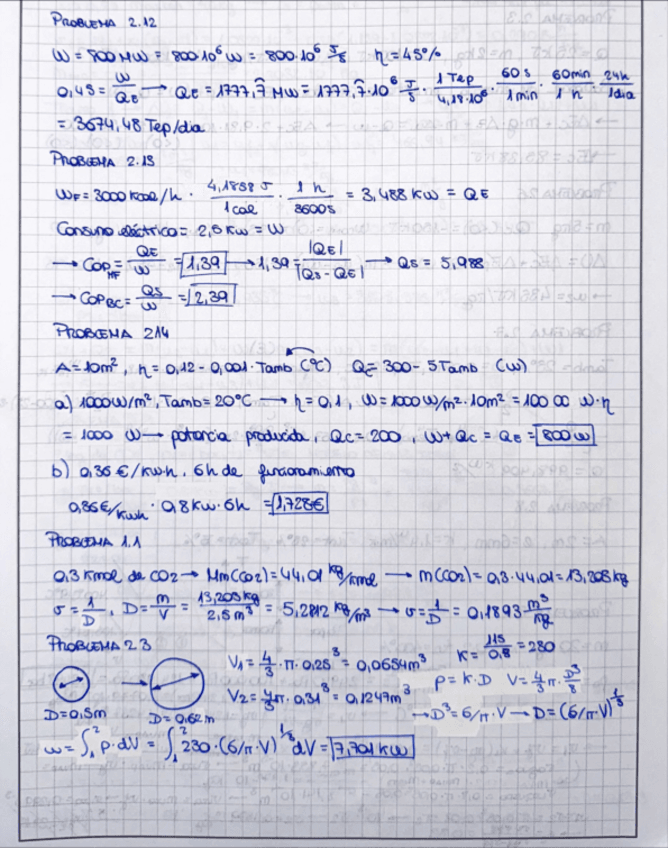 PROBLEMA 2.12
W = 800 MW = 800·10⁶ W = 800·10⁶ J/s   η = 45%
0,45 = W/QE → QE = 1777,7̂ MW = 1777,7̂·10⁶ J/s · 1 Tep/4,18·10⁶ · 60 s/1 min · 60 min/1 h · 24h/1 dia
= 3674,48 Tep/dia
PROBLEMA 2.13
WF = 3000 Kcal/h · 4,1858 J/1 cal · 1 h/3600 s = 3,488 KW = QE
Consumo eléctrico = 2,5 KW = W
→ COPMF = QE/W = 1,39 → 1,39 = |QE|/|QS - QE| → QS = 5,988
→ COPBC = QS/W = 2,39
PROBLEMA 2.14
A = 10m², η = 0,12 - 0,001·Tamb (°C)   QC = 300 - 5Tamb (W)
a) 1000 W/m², Tamb = 20°C → η = 0,1, W = 1000 W/m² · 10m² = 100 00 W·η
= 1000 W → potencia producida, QC = 200, W + QC = QE = 800 W
b) 0,36 €/KW·h, 6h de funcionamiento
0,36 €/KWh · 0,8 KW · 6h = 1,728 €
PROBLEMA 1.1
0,3 Kmol de CO2 → Mm(CO2) = 44,01 kg/kmol → m(CO2) = 0,3·44,01 = 13,203 kg
v = 1/D, D = m/V = 13,203 kg/2,5 m³ = 5,2812 kg/m³ → v = 1/D = 0,1893 m³/kg
PROBLEMA 2.3
V1 = 4/3·π·0,25³ = 0,0654 m³   K = 115/0,5 = 230
V2 = 4/3π·0,31³ = 0,1247 m³   P = K·D   V = 4/3 π · D³/8
D = 0,5m   D = 0,62m   → D³ = 6/π·V → D = (6/π·V)^1/3
w = ∫₁² P·dV = ∫₁² 230·(6/π·V)^1/3 dV = 7,701 KW